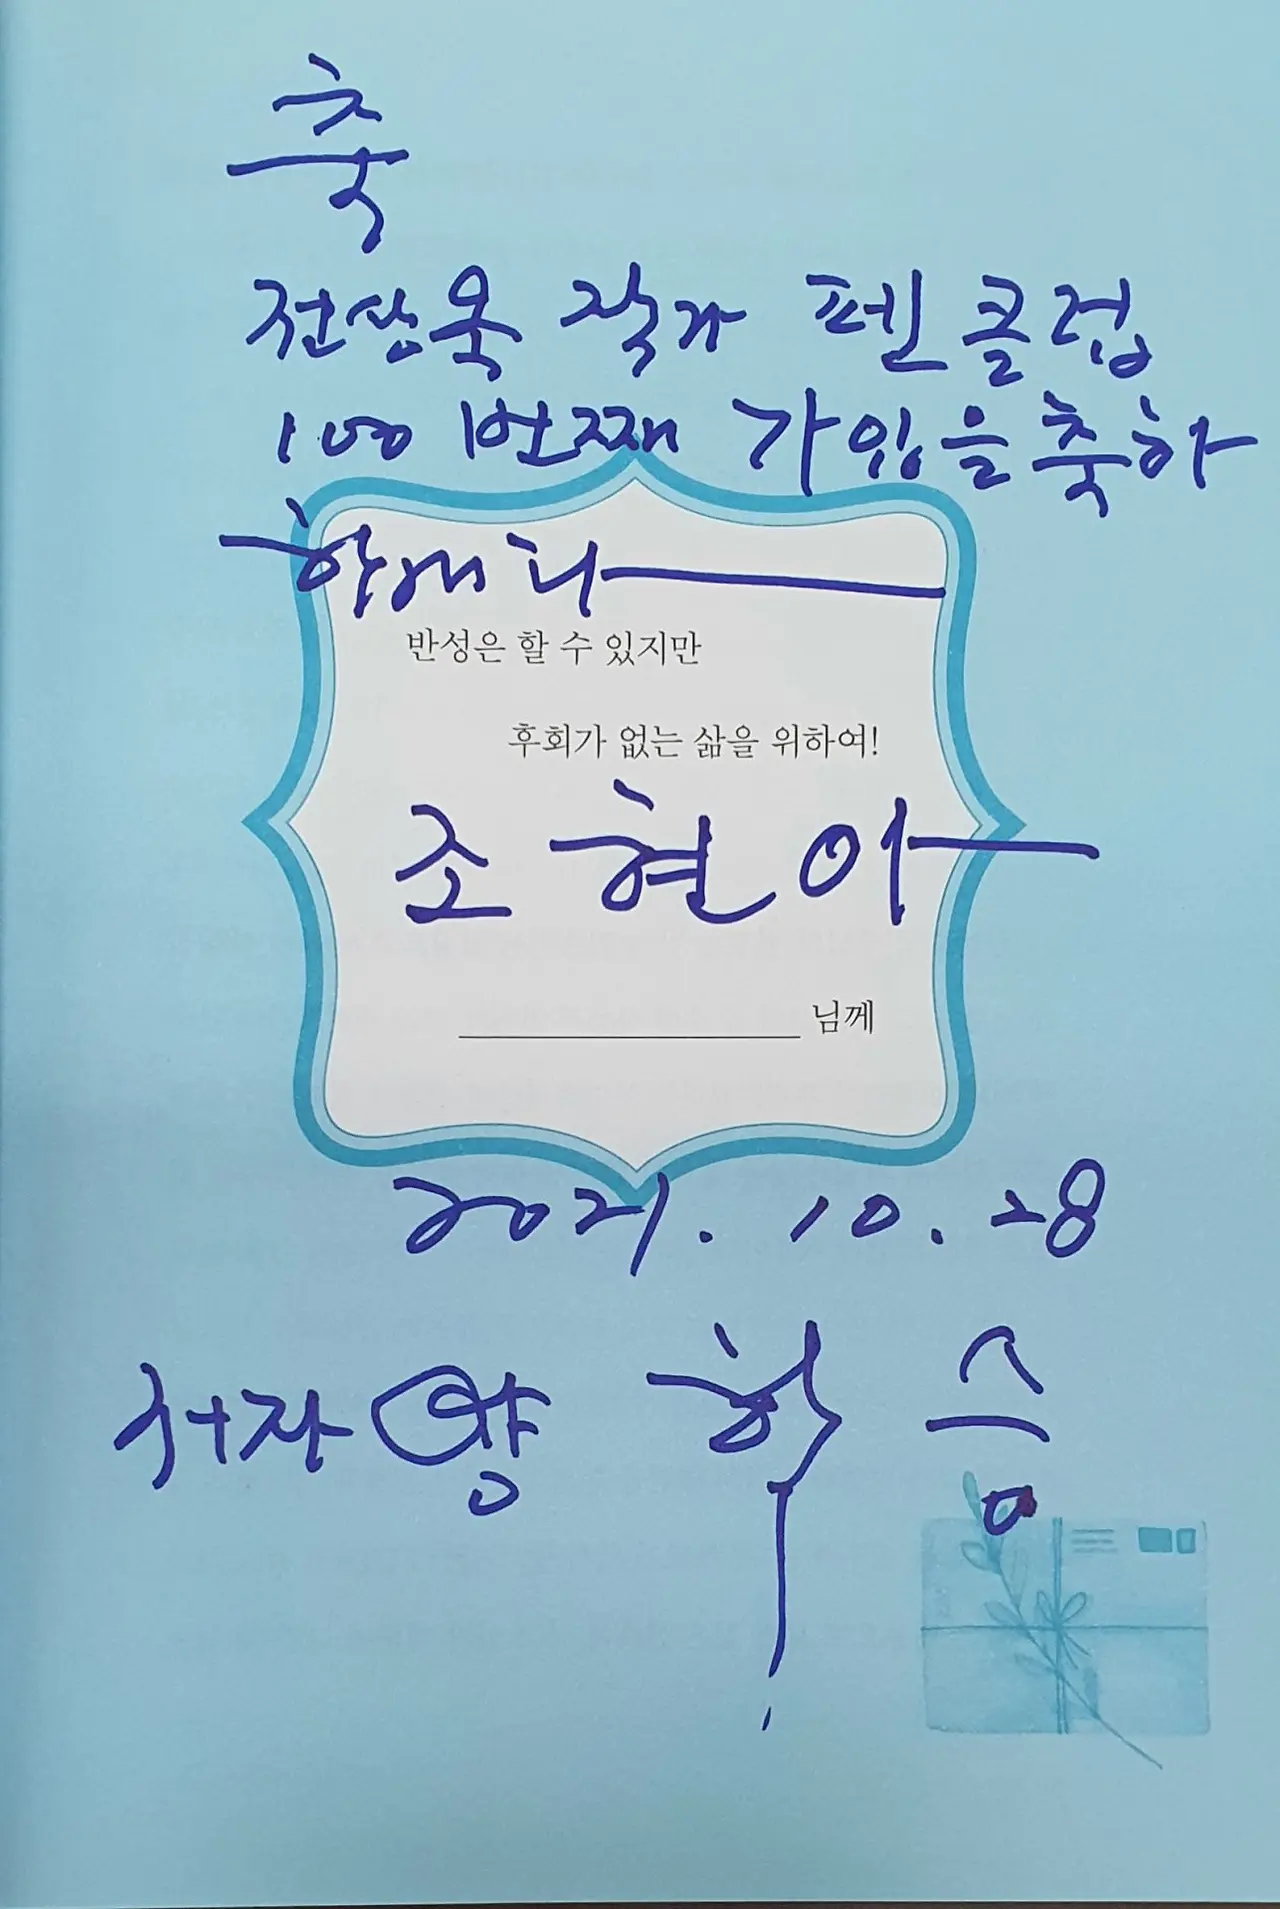 축
전상욱 작가 펜클럽
100번째 가입을 축하
합니다
반성은 할 수 있지만
후회가 없는 삶을 위하여!
조현아
님께
2021. 10. 28
저자 양 학 승